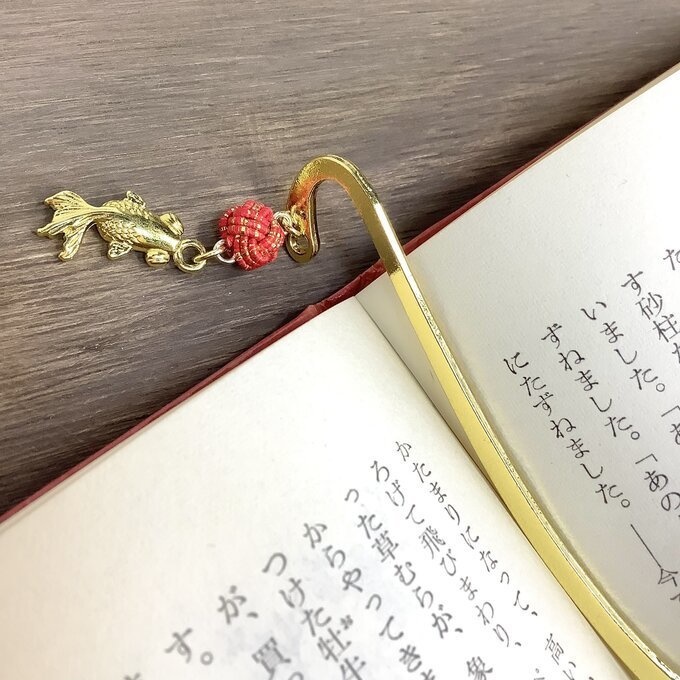 た
す砂柱が
いました。「あ
ずねました。「あの
にたずねました。――今
かたまりになって、高い
ろげて飛びまわり、
った草むらが、象
からやってきま
つけた牡牛
が、買
す。